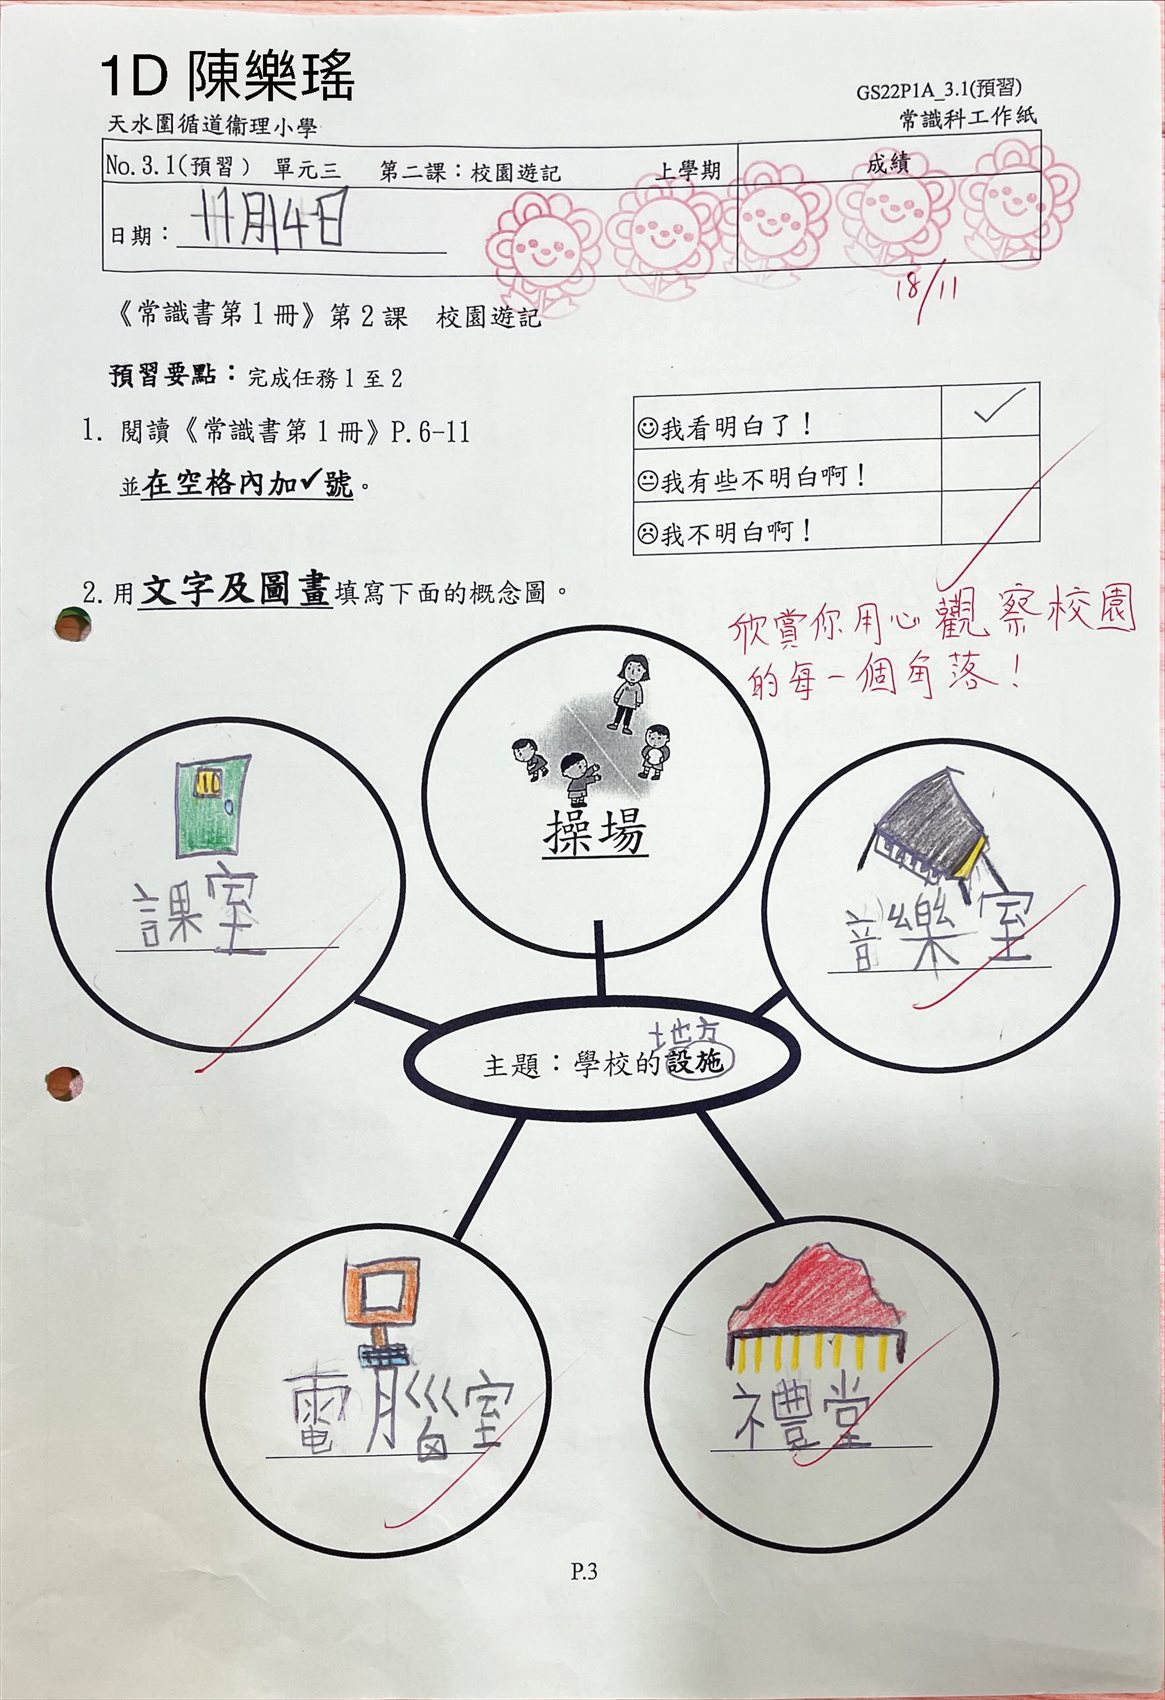 1D 陳樂瑤
GS22P1A_3.1(預習)
天水圍循道衞理小學
常識科工作紙
No.3.1(預習) 單元三 第二課：校園遊記 上學期
成績
日期：11月14日
18/11
《常識書第1冊》第2課 校園遊記
預習要點：完成任務1至2
1. 閱讀《常識書第1冊》P.6-11
並在空格內加✓號。
☺我看明白了！ ✓
😐我有些不明白啊！
☹我不明白啊！
2. 用文字及圖畫填寫下面的概念圖。
欣賞你用心觀察校園
的每一個角落！
操場
課室
音樂室
地方
主題：學校的設施
電腦室
禮堂
P.3